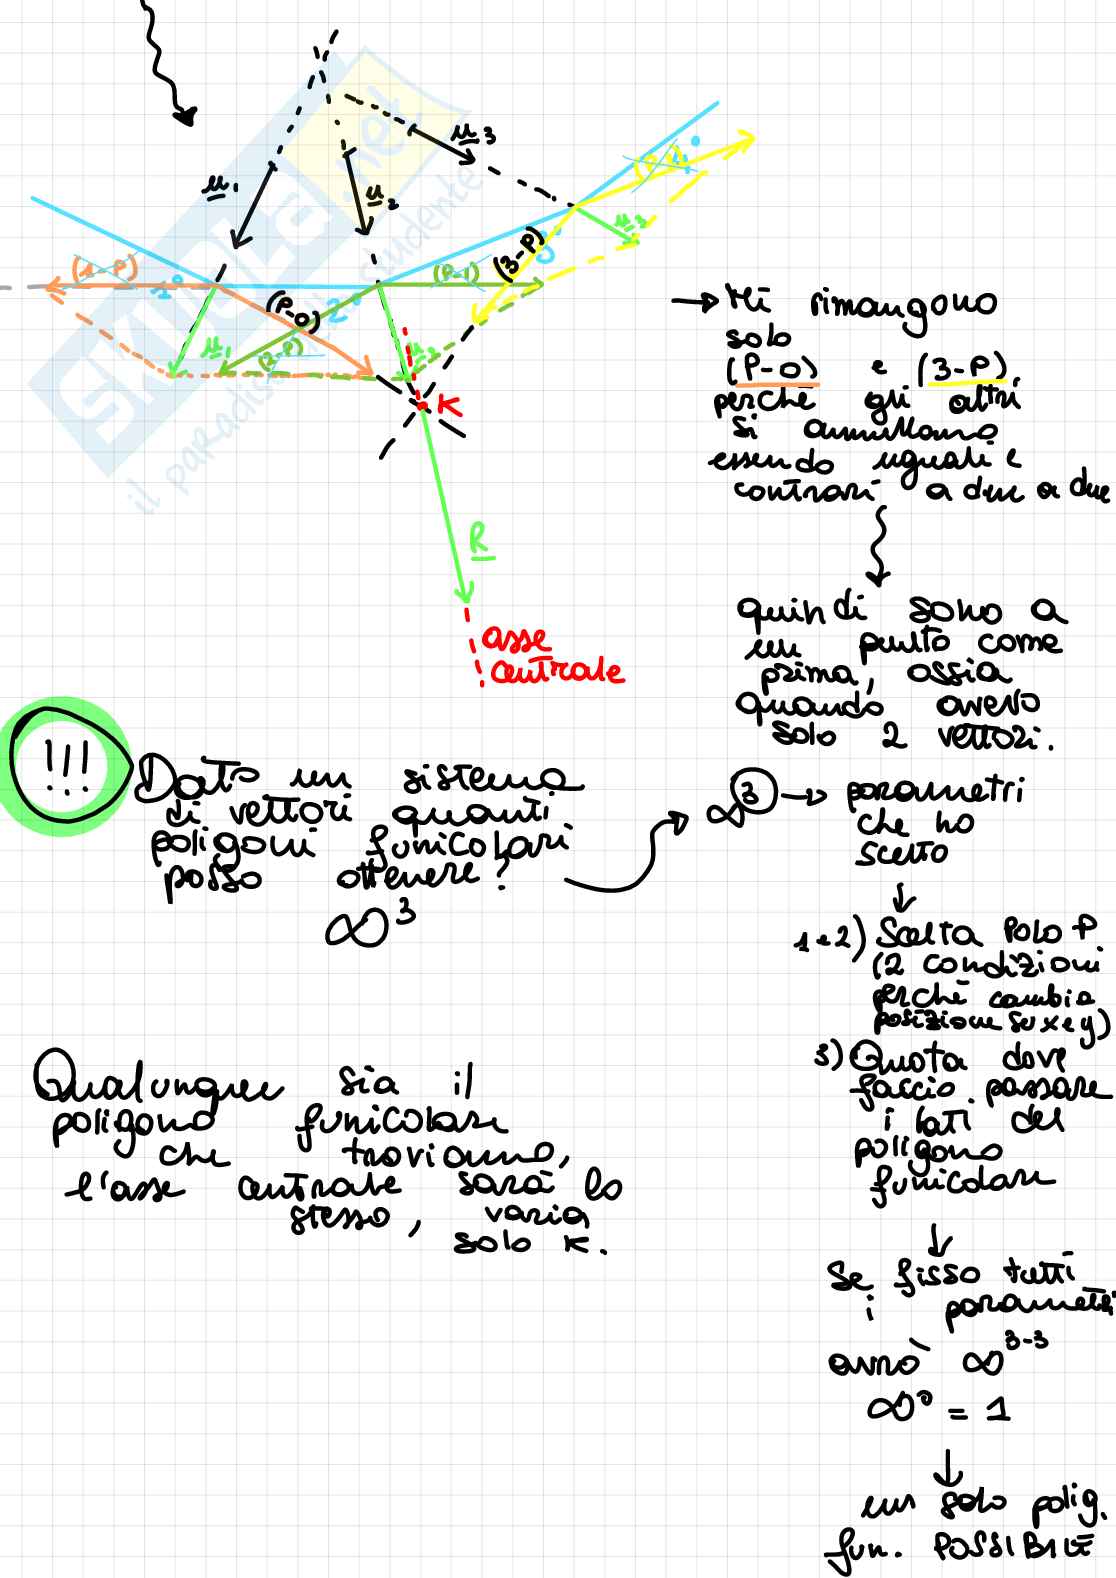 SKUOLA.net
il paradiso dello studente
u₁
u₂
u₃
(1-P)
1°
(P-0)
2°
(2-P)
(P-1)
3°
(3-P)
(P-2)
4°
u₁
u₂
u₃
K
R
asse
centrale
→ Mi rimangono
solo
(P-0) e (3-P)
perché gli altri
si annullano
essendo uguali e
contrari a due a due
quindi sono a
un punto come
prima, ossia
quando avevo
solo 2 vettori.
!!!
Dato un sistema
di vettori quanti
poligoni funicolari
posso ottenere?
∞³
∞³ → parametri
che ho
scelto
1 e 2) Scelta Polo P
(2 condizioni
perché cambia
posizione su x e y)
3) Quota dove
faccio passare
i lati del
poligono
funicolare
Se fisso tutti
i parametri
avrò ∞³⁻³
∞⁰ = 1
un solo polig.
fun. POSSIBILE
Qualunque sia il
poligono funicolare
che troviamo,
l'asse centrale sarà lo
stesso, varia
solo K.